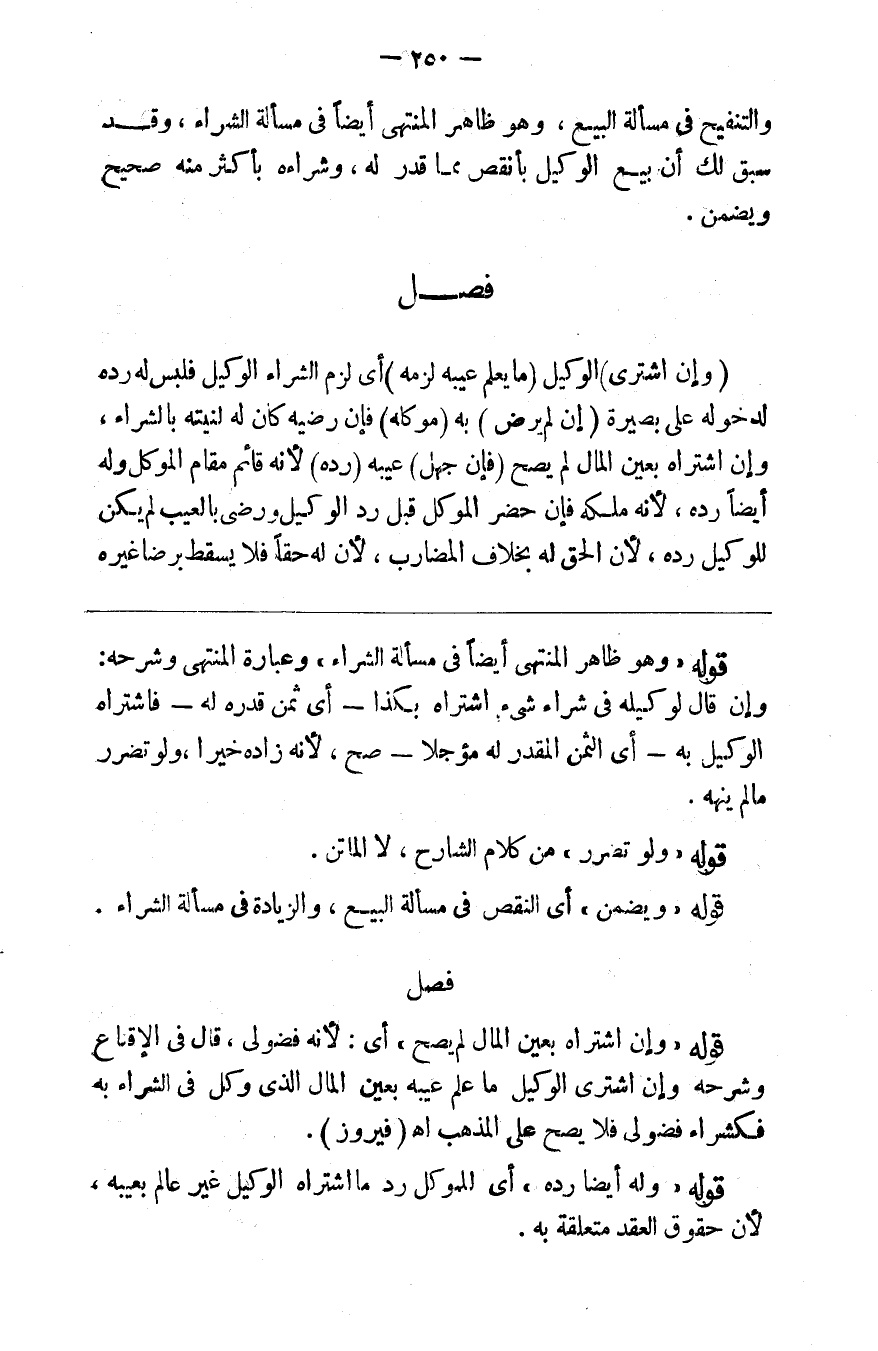 — ٢٥٠ —
والتنقيح في مسألة البيع ، وهو ظاهر المنتهى أيضاً فى مسألة الشراء ، وقد
سبق لك أن بيع الوكيل بأنقص مما قدر له ، وشراءه بأكثر منه صحيح
ويضمن .
فصل
( وإن اشترى) الوكيل (ما يعلم عيبه لزمه )أى لزم الشراء الوكيل فليس له رده
لدخوله على بصيرة ( إن لم يرض ) به (موكله) فإن رضيه كان له لنيته بالشراء ،
وإن اشتراه بعين المال لم يصح (فإن جهل) عيبه (رده) لأنه قائم مقام الموكل وله
أيضاً رده ، لأنه ملكه فإن حضر الموكل قبل رد الوكيل ورضى بالعيب لم يكن
للوكيل رده ، لأن الحق له بخلاف المضارب ، لأن له حقاً فلا يسقط برضا غيره
قوله « وهو ظاهر المنتهى أيضاً فى مسألة الشراء » وعبارة المنتهى وشرحه:
وإن قال لوكيله فى شراء شىء اشتراه بكذا — أى ثمن قدره له — فاشتراه
الوكيل به — أى الثمن المقدر له مؤجلا — صح ، لأنه زاده خيرا ،ولو تضرر
مالم ينهه .
قوله « ولو تضرر » من كلام الشارح ، لا الماتن .
قوله « ويضمن » أى النقص فى مسألة البيع ، والزيادة فى مسألة الشراء .
فصل
قوله « وإن اشتراه بعين المال لم يصح » أى : لأنه فضولى ، قال فى الإقناع
وشرحه وإن اشترى الوكيل ما علم عيبه بعين المال الذى وكل فى الشراء به
فكشراء فضولى فلا يصح على المذهب اه ( فيروز ) .
قوله « وله أيضا رده » أى للموكل رد ما اشتراه الوكيل غير عالم بعيبه ،
لأن حقوق العقد متعلقة به .